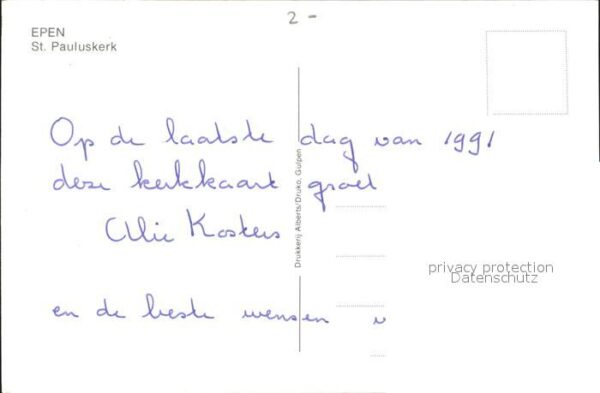 2 -
EPEN
St. Pauluskerk
Op de laatste dag van 1991
deze kerkkaart groet
Drukkerij Alberts/Druko, Gulpen
privacy protection
Datenschutz
en de beste wensen v